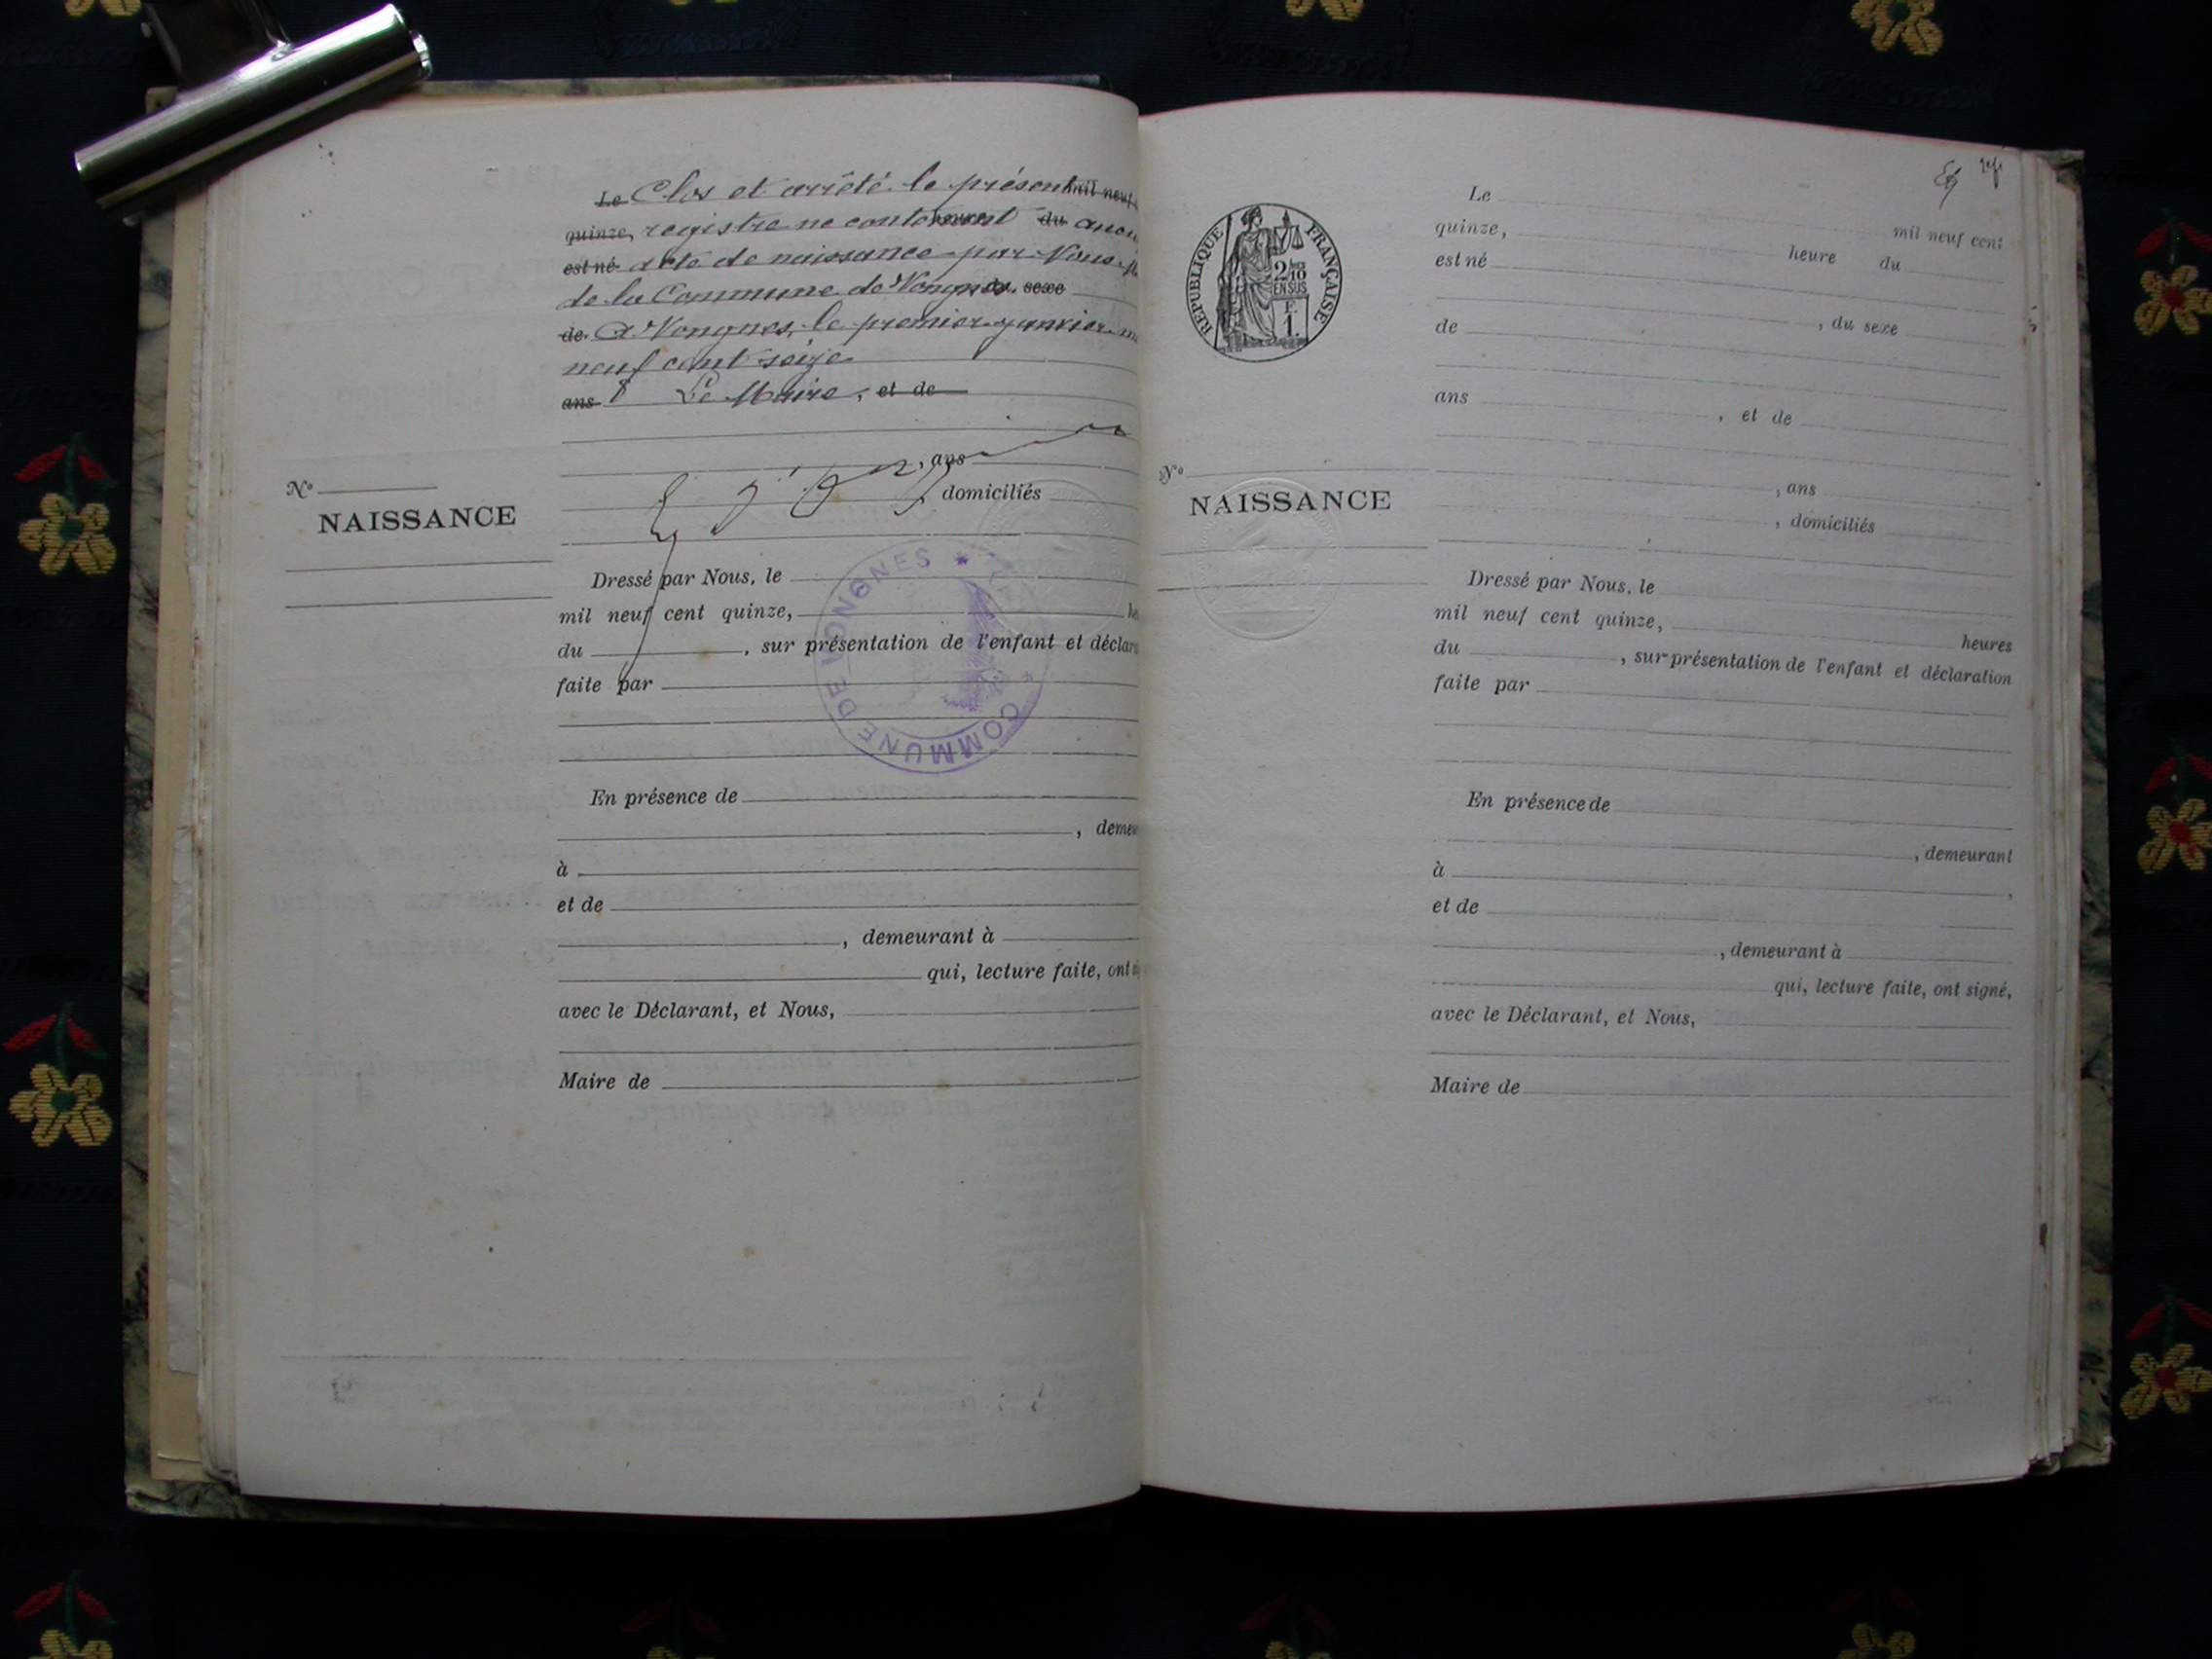 Le Clos et arrêté le présent mil neuf
quinze, registre ne contenant du aucun
est né acte de naissance par Nous
de la Commune de Vongnes. du sexe
de A Vongnes, le premier janvier m
neuf cent seize
ans Le Maire, et de
, ans
N° , domiciliés
NAISSANCE
Dressé par Nous, le
mil neuf cent quinze, he
du , sur présentation de l'enfant et déclara
faite par
COMMUNE DE VONGNES
En présence de
, demeu
à
et de
, demeurant à
qui, lecture faite, ont si
avec le Déclarant, et Nous,
Maire de
REPUBLIQUE FRANÇAISE
2/10
EN SUS
F
1.
Le
mil neuf cent
quinze,
heure du
est né
de , du sexe
ans , et de
N° , ans
NAISSANCE , domiciliés
Dressé par Nous, le
mil neuf cent quinze, heures
du , sur présentation de l'enfant et déclaration
faite par
En présence de
, demeurant
à ,
et de
, demeurant à
qui, lecture faite, ont signé,
avec le Déclarant, et Nous,
Maire de